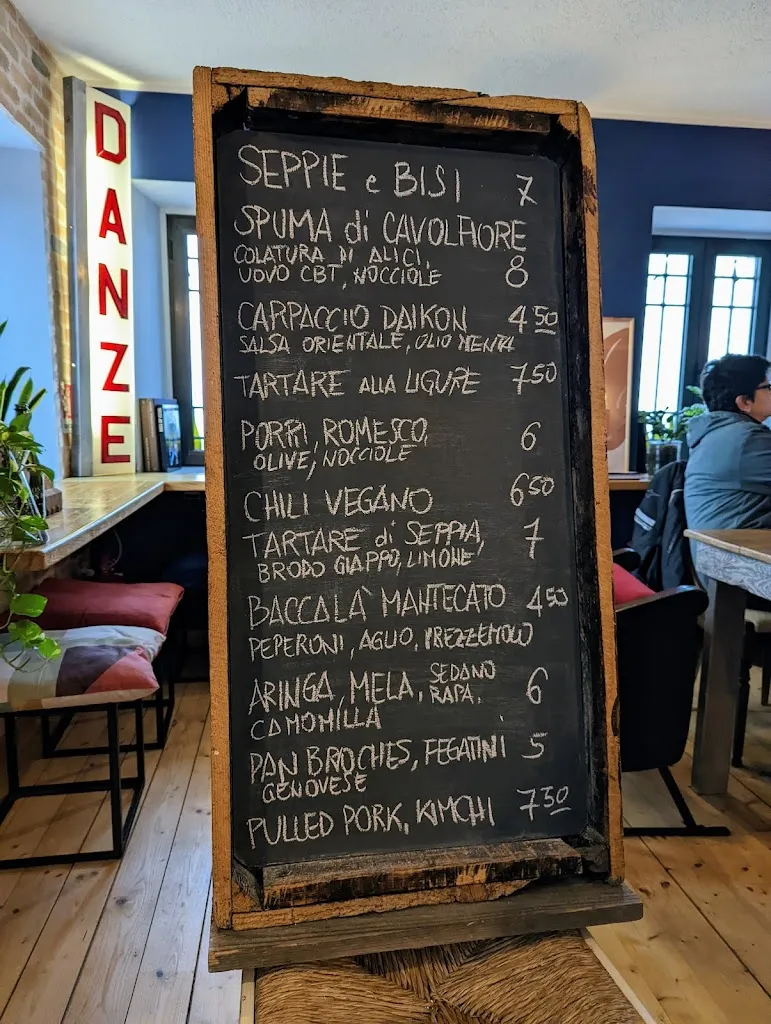 DANZE
SEPPIE e BISI 7
SPUMA di CAVOLFIORE
COLATURA DI ALICI,
UOVO CBT, NOCCIOLE 8
CARPACCIO DAIKON 4 50
SALSA ORIENTALE, OLIO MENTA
TARTARE ALLA LIGURE 7 50
PORRI, ROMESCO, 6
OLIVE, NOCCIOLE
CHILI VEGANO 6 50
TARTARE di SEPPIA, 7
BRODO GIAPPO, LIMONE
BACCALÀ MANTECATO 4 50
PEPERONI, AGLIO, PREZZEMOLO
ARINGA, MELA, SEDANO
RAPA, 6
CAMOMILLA
PAN BROCHES, FEGATINI 5
GENOVESE
PULLED PORK, KIMCHI 7 50